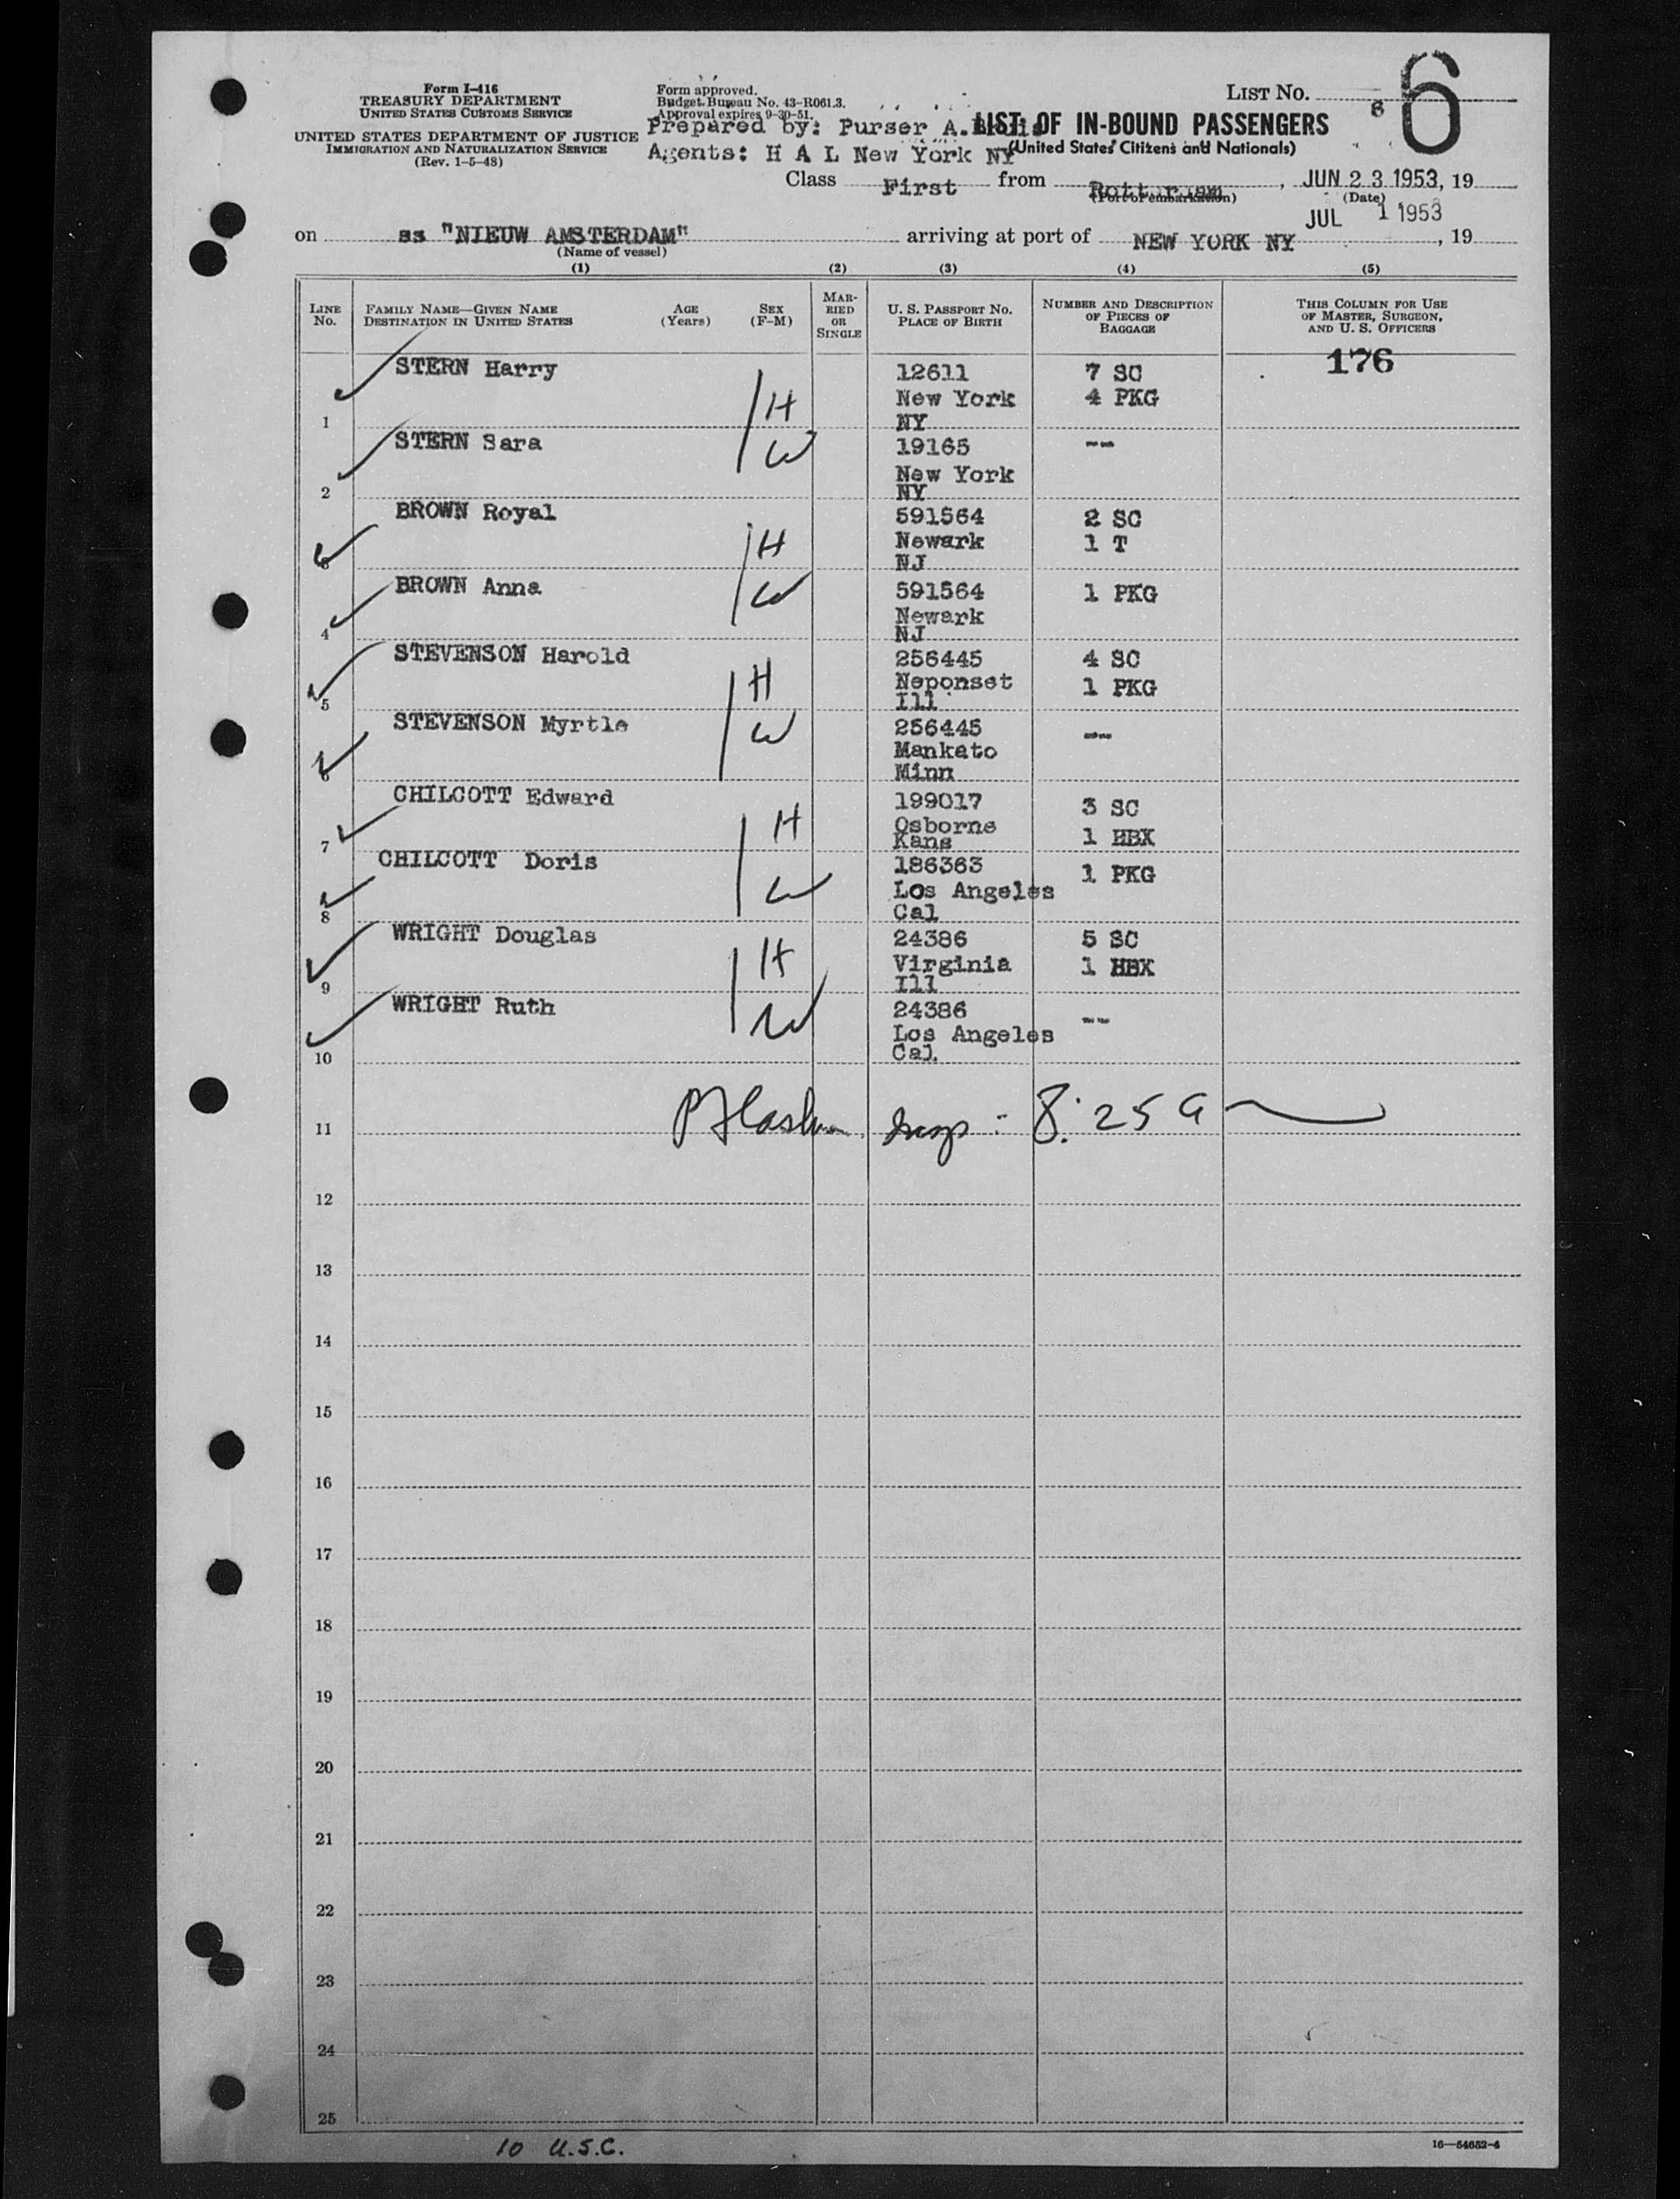 Form I-416
TREASURY DEPARTMENT
UNITED STATES CUSTOMS SERVICE
UNITED STATES DEPARTMENT OF JUSTICE
IMMIGRATION AND NATURALIZATION SERVICE
(Rev. 1-5-48)
Form approved.
Budget Bureau No. 43-R061.3.
Approval expires 9-30-51.
Prepared by: Purser A.
Agents: H A L New York NY
LIST No. 6
6
LIST OF IN-BOUND PASSENGERS
(United States Citizens and Nationals)
Class First from Rotterdam, JUN 23 1953, 19
(Port of embarkation) (Date)
on ss "NIEUW AMSTERDAM" arriving at port of NEW YORK NY JUL 1 1953, 19
(Name of vessel)
(1) (2) (3) (4) (5)
LINE No. FAMILY NAME—GIVEN NAME DESTINATION IN UNITED STATES AGE (Years) SEX (F-M) MARRIED OR SINGLE U. S. PASSPORT NO. PLACE OF BIRTH NUMBER AND DESCRIPTION OF PIECES OF BAGGAGE THIS COLUMN FOR USE OF MASTER, SURGEON, AND U. S. OFFICERS
176
STERN Harry 12611 7 SC
H New York 4 PKG
1 NY
STERN Sara W 19165 --
New York
2 NY
BROWN Royal 591564 2 SC
H Newark 1 T
3 NJ
BROWN Anna W 591564 1 PKG
Newark
4 NJ
STEVENSON Harold 256445 4 SC
H Neponset 1 PKG
5 Ill
STEVENSON Myrtle W 256445 --
Mankato
6 Minn
CHILCOTT Edward 199017 3 SC
H Osborne 1 HBX
7 Kans
CHILCOTT Doris 186363 1 PKG
W Los Angeles
8 Cal
WRIGHT Douglas 24386 5 SC
H Virginia 1 HBX
9 Ill
WRIGHT Ruth 24386 --
W Los Angeles
10 Cal.
11 insp - 8:25 a
12
13
14
15
16
17
18
19
20
21
22
23
24
25
10 U.S.C.
16—54652-4